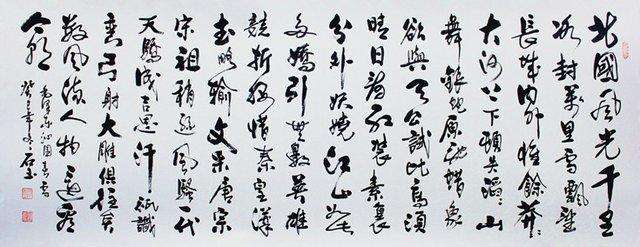 北國風光千里
冰封萬里雪飄望
長城內外惟餘莽々
大河上下頓失滔々山
舞銀蛇原馳蜡象
欲與天公試比高須
晴日看紅裝素裹
分外妖嬈江山如此
多嬌引無數英雄
競折腰惜秦皇漢
武略輸文采唐宗
宋祖稍遜風騷一代
天驕成吉思汗祇識
彎弓射大雕俱往矣
數風流人物還看
今朝
毛澤東沁園春雪
癸巳年 石玉